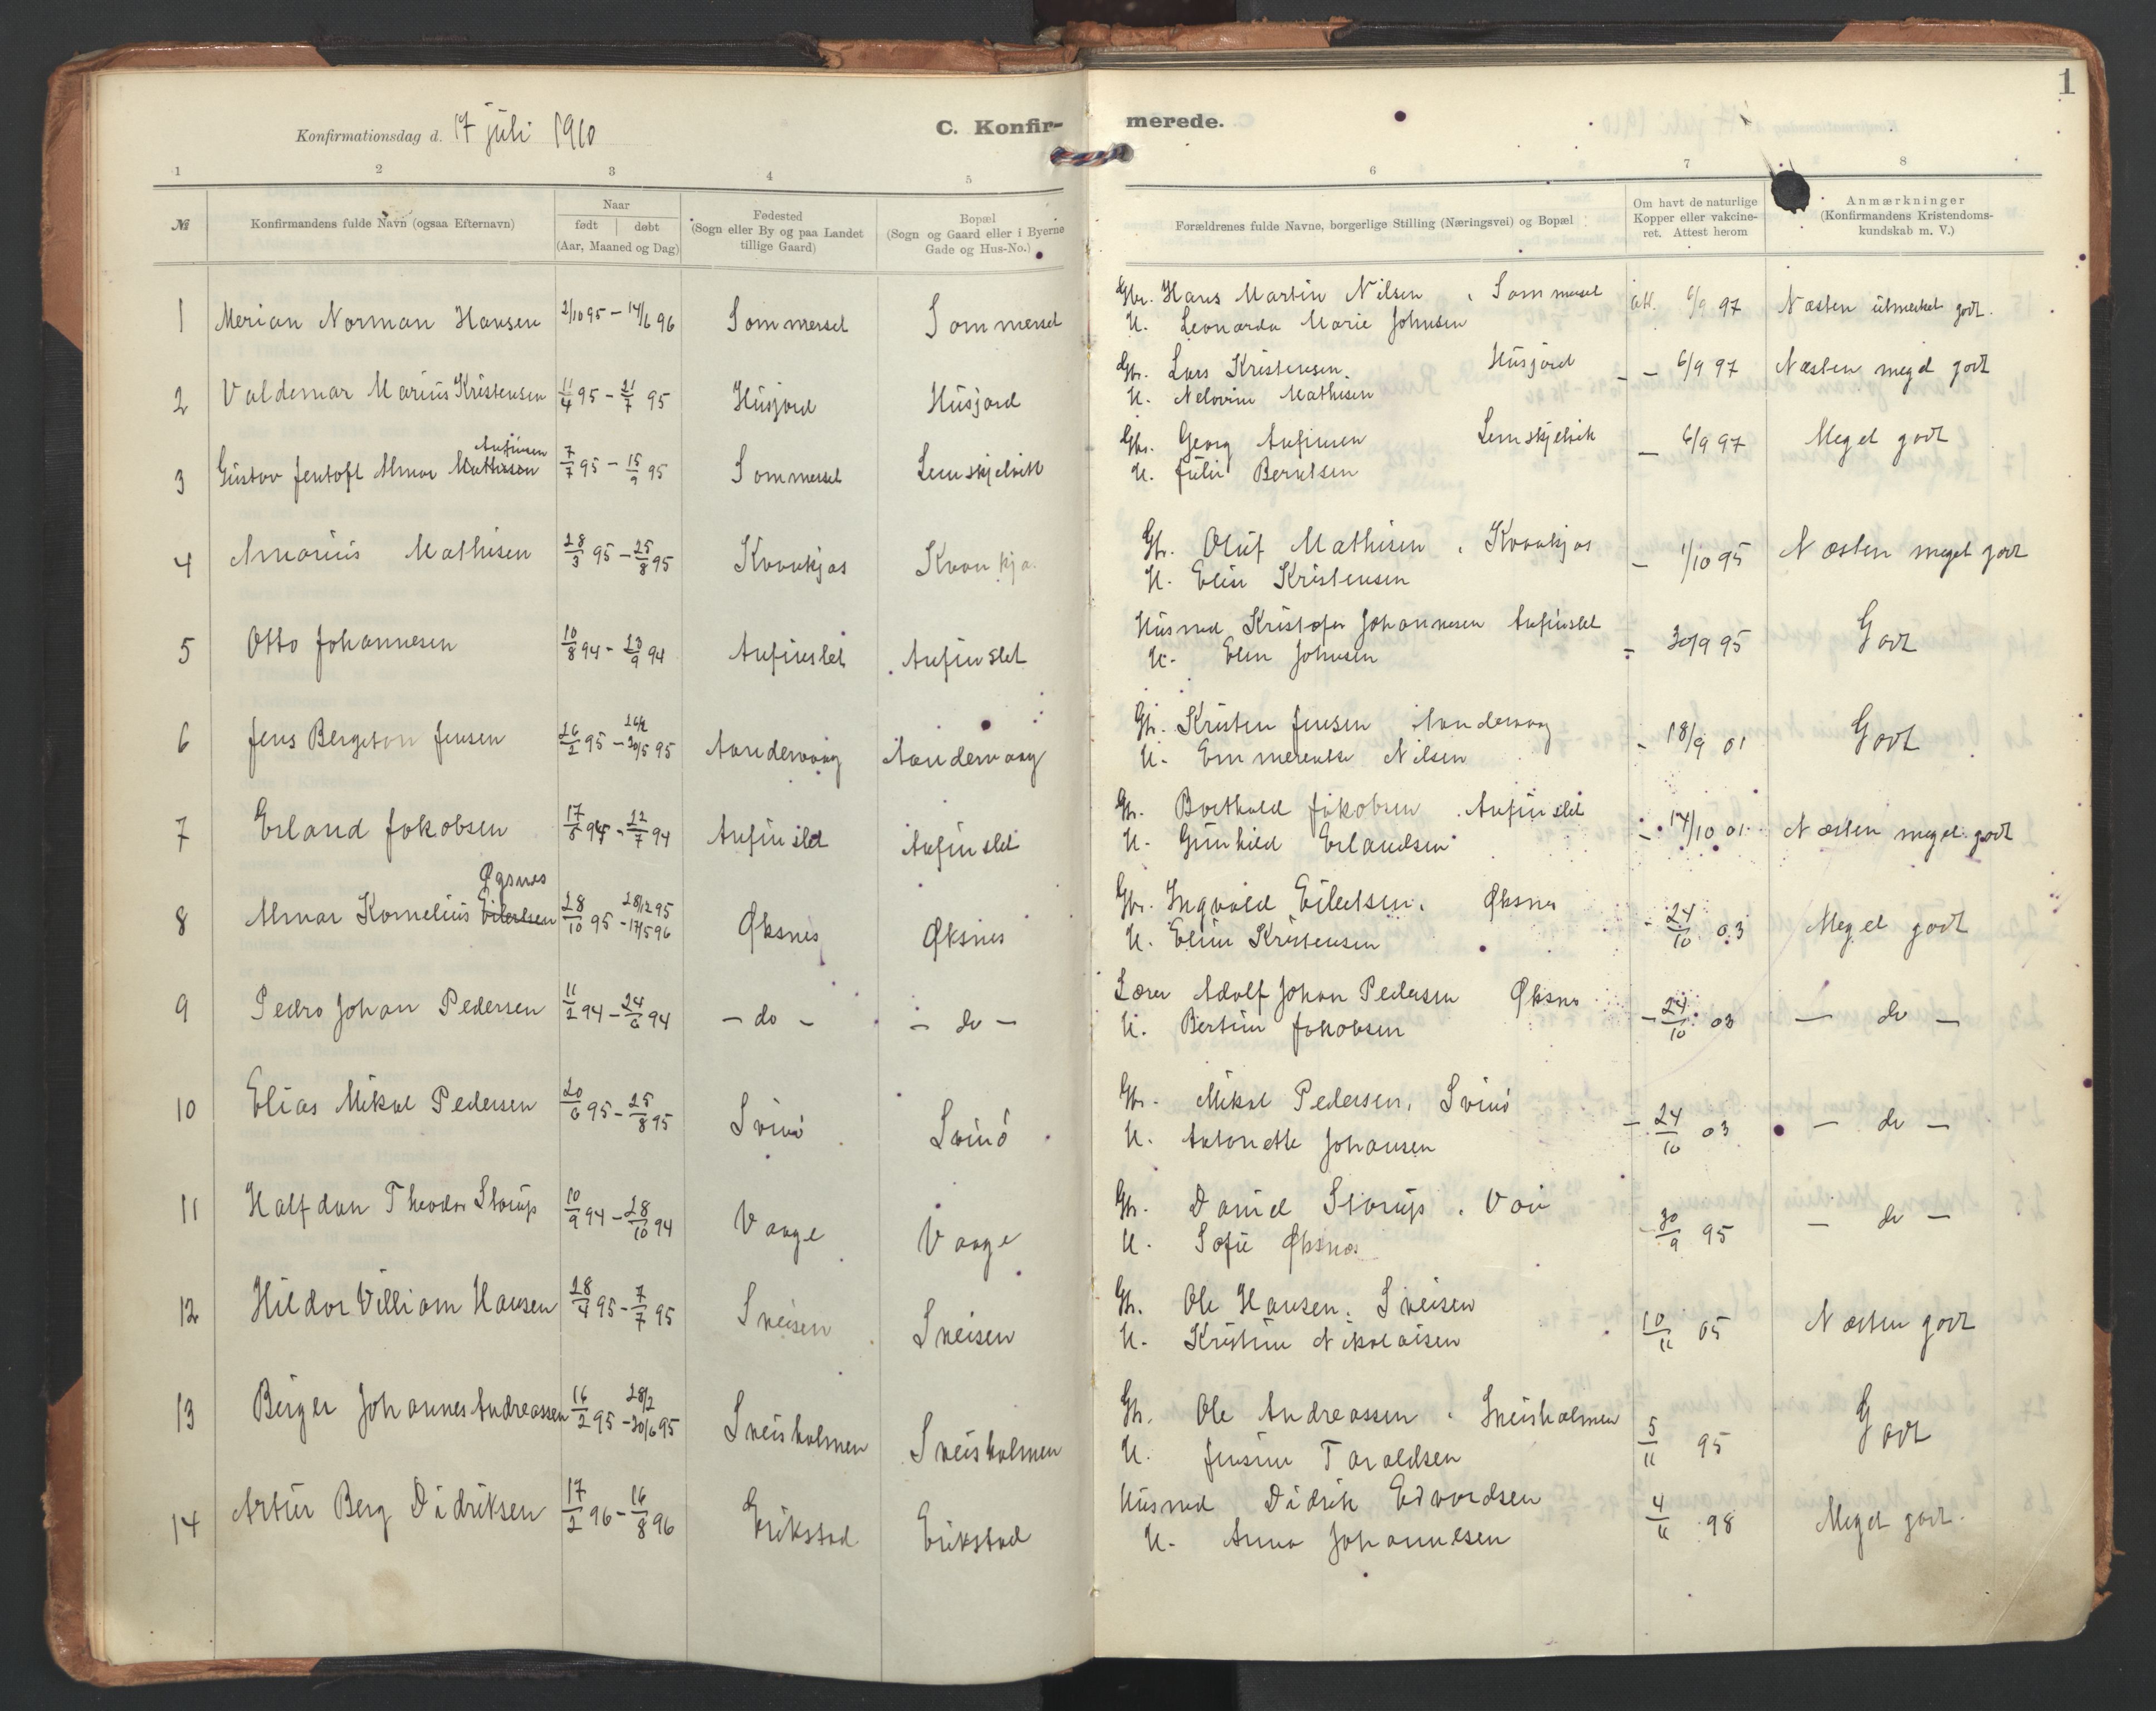 1
Konfirmationsdag d. 17 juli 1910
C. Konfir- merede.
1 2 3 4 5 6 7 8
№
Konfirmandens fulde Navn (ogsaa Efternavn)
Naar
født | døbt
(Aar, Maaned og Dag)
Fødested
(Sogn eller By og paa Landet
tillige Gaard)
Bopæl
(Sogn og Gaard eller i Byerne
Gade og Hus-No.)
Forældrenes fulde Navne, borgerlige Stilling (Næringsvei) og Bopæl
Om havt de naturlige
Kopper eller vakcine-
ret. Attest herom
Anmærkninger
(Konfirmandens Kristendoms-
kundskab m. V.)
1 Merian Norman Hansen 2/10 95 – 14/6 96 Sommersel Sommersel
Gbr. Hans Martin Nilsen, Sommersel att. 6/9 97 Næsten utmerket godt.
H. Leonarda Marie Johnsen
2 Valdemar Marius Kristensen 11/4 95 – 21/7 95 Husjord Husjord
Gb. Lars Kristensen. Husjord – 6/9 97 Næsten meget godt
H. Nelovine Mathisen
Anfinsen
3 Gustav Jentoft Almar Mathisen 7/7 95 – 15/9 95 Sommersel Lemskjelvik
Gb. Georg Anfinsen Lemskjelvik – 6/9 97 Meget godt
H. Julie Berntsen
4 Amarius Mathisen 28/3 95 – 25/8 95 Kvankjos
Gb. Oluf Mathisen, Kvankjos – 1/10 95 Næsten meget godt
H. Elise Kristensen
5 Otto Johannesen 10/8 94 – 23/9 94 Anfinslet Anfinslet
Husmd Kristofer Johannesen Anfinslet – 30/9 95 Godt
H. Elen Johnsen
26/2
6 Jens Bergeton Jensen 26/2 95 – 30/5 95 Aandervaag Aandervaag
Gb. Kristen Jensen Aandervaag – 18/9 01 Godt
H. Emmerentse Nilsen
7 Erland Jakobsen 17/5 94 – 22/7 94 Anfinslet Anfinslet
Gb. Borthald Jakobsen. Anfinslet – 14/10 01 Næsten meget godt
H. Gunhild Erlandsen
Øgsnes 28/12 95
8 Almar Kornelius Eilertsen 28/10 95 – 17/5 96 Øksnes Øksnes
Gb. Ingvald Eilertsen. Øksnes – 24/10 03 Meget godt
H. Eline Kristensen
9 Pedro Johan Pedersen 11/2 94 – 24/6 94 – do – – do –
Lærer Adolf Johan Pedersen Øksnes – 24/10 03 – do –
H. Bertine Jakobsen
10 Elias Mikal Pedersen 20/6 95 – 25/8 95 Svinö Svinö
Gb. Mikal Pedersen, Svinö – 24/10 03 – do –
H. Antonette Johansen
11 Halfdan Theodor Storup 10/9 94 – 28/10 94 Vaage Vaage
Gb. Daniel Storup. – 30/9 95 – do –
H. Sofie Øksnes
12 Hildor Villiam Hansen 28/4 95 – 7/7 95 Skeisen Skeisen
Gb. Ole Hansen. Skeisen 10/11 05 Næsten godt
H. Kristine Nikolaisen
28/2
13 Birger Johannes Andreassen 16/2 95 – 30/6 95 Skeisholmen Skeisholmen
Gb. Ole Andreassen. Skeisholmen 5/11 95 Godt
H. Jensine Taraldsen
14 Artur Berg Didriksen 17/2 96 – 16/8 96 Erikstad Erikstad
Husmd Didrik Edvardsen 4/11 98 Meget godt.
H. Anna Johannesen